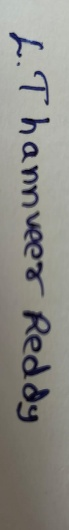 L. Thannveer Reddy